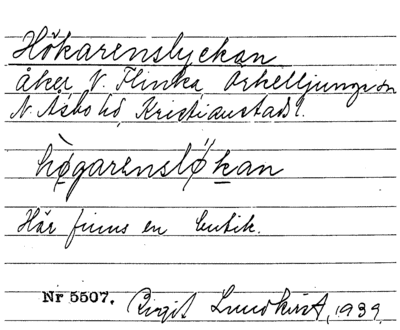 Hökarenslyckan
åker, V. Flinka, Örkelljunga sn
N. Åsbo hd, Kristianstads l.
hø̀garenslø̋kan
Här finns en butik.
Nr 5507. Birgit Lundkvist, 1939